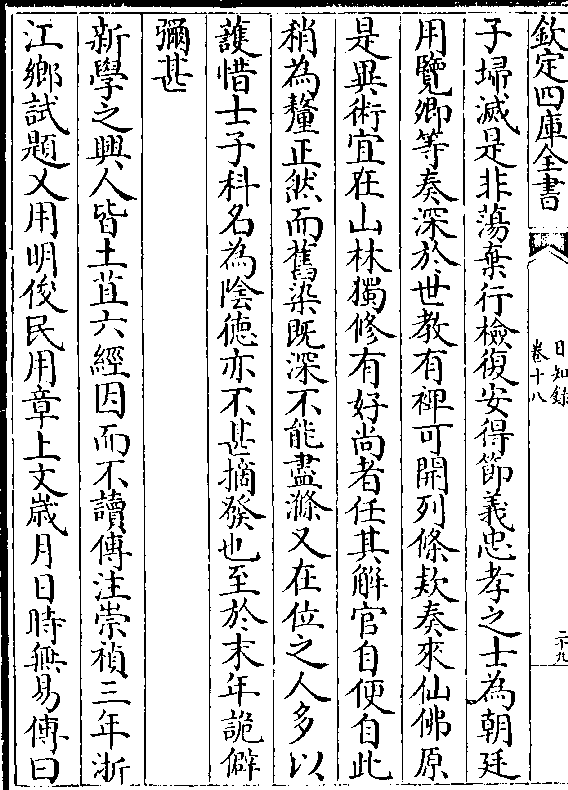 欽定四庫全書
日知錄
卷十八
二十九
子埽滅是非蕩棄行檢復安得節義忠孝之士為朝廷
用覽卿等奏深於世教有裨可開列條欵奏來仙佛原
是異術宜在山林獨修有好尚者任其解官自便自此
稍為釐正然而舊染既深不能盡滌又在位之人多以
護惜士子科名為陰德亦不甚摘發也至於末年詭僻
彌甚
新學之興人皆土苴六經因而不讀傳注崇禎三年浙
江鄉試題乂用明俊民用章上文嵗月日時無易傳曰